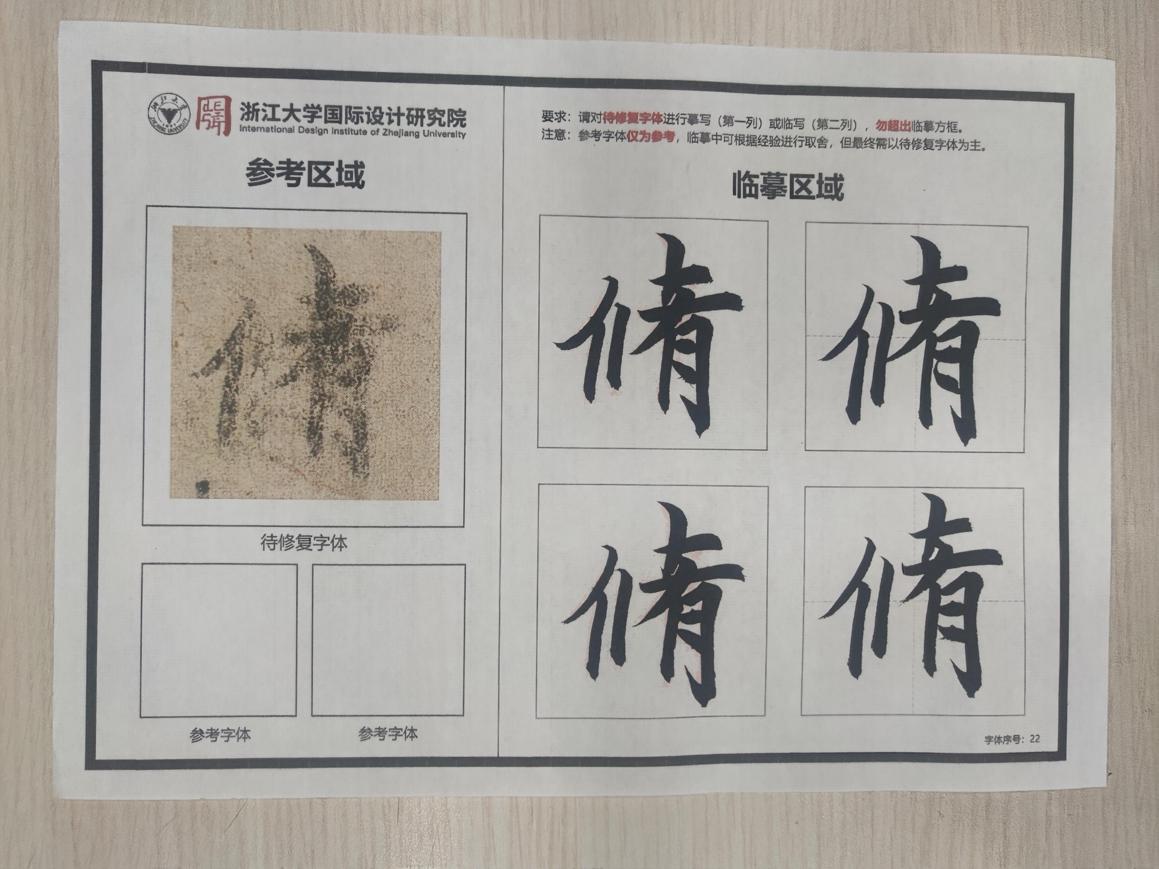 浙江大学国际设计研究院
International Design Institute of Zhejiang University
参考区域
待修复字体
参考字体
参考字体
要求：请对待修复字体进行摹写（第一列）或临写（第二列），勿超出临摹方框。
注意：参考字体仅为参考，临摹中可根据经验进行取舍，但最终需以待修复字体为主。
临摹区域
字体序号：22